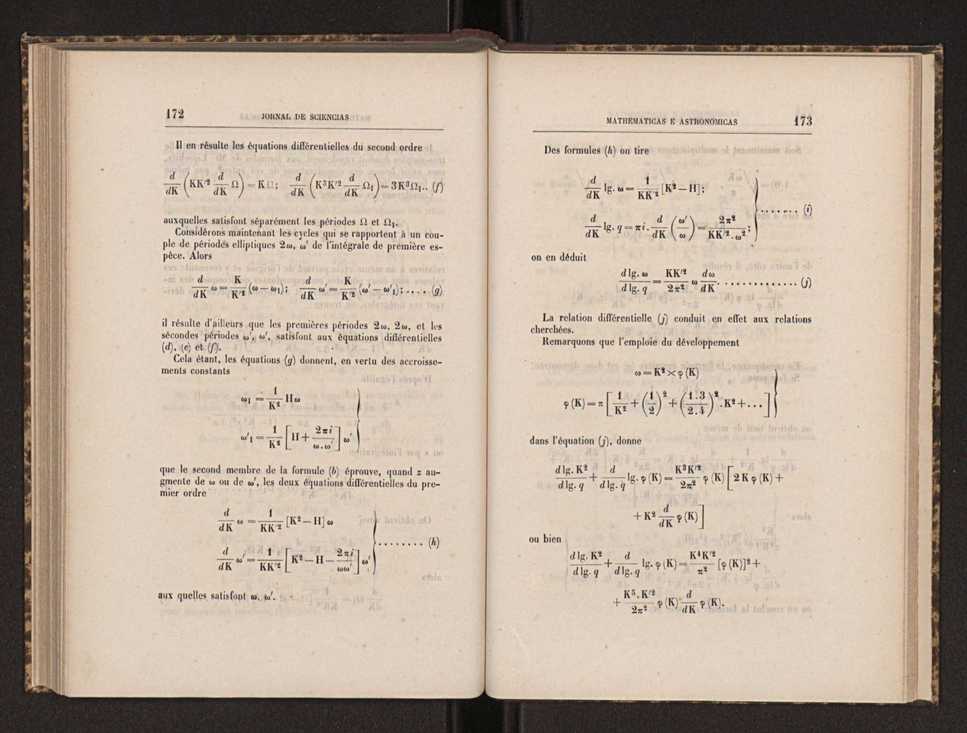 172 JORNAL DE SCIENCIAS
Il en résulte les équations différentielles du second ordre
d/dK (KK'² d/dK Ω) = KΩ; d/dK (K³K'² d/dK Ω₁) = 3K³Ω₁.. (f)
auxquelles satisfont séparément les périodes Ω et Ω₁.
Considérons maintenant les cycles qui se rapportent à un cou-
ple de périodes elliptiques 2ω, ω' de l'intégrale de première es-
pèce. Alors
d/dK ω = K/K'² (ω—ω₁); d/dK ω' = K/K'² (ω'—ω'₁); .... (g)
il résulte d'ailleurs que les premières périodes 2ω, 2ω, et les
sécondes périodes ω', ω', satisfont aux équations différentielles
(d), (e) et (f).
Cela étant, les équations (g) donnent, en vertu des accroisse-
ments constants
ω₁ = 1/K² Hω
ω'₁ = 1/K² [H + 2πi/ω.ω'] ω'
que le second membre de la formule (b) éprouve, quand z au-
gmente de ω ou de ω', les deux équations différentielles du pre-
mier ordre
d/dK ω = 1/KK'² [K²—H] ω
d/dK ω' = 1/KK'² [K²—H— 2πi/ωω'] ω' ........ (h)
aux quelles satisfont ω, ω'.
MATHEMATICAS E ASTRONOMICAS 173
Des formules (h) on tire
d/dK lg. ω = 1/KK'² [K²—H];
d/dK lg. q = πi. d/dK (ω'/ω) = 2π²/KK'².ω²; ....... (i)
on en déduit
d lg. ω/d lg. q = KK'²/2π² ω dω/dK. ............. (j)
La relation différentielle (j) conduit en effet aux relations
cherchées.
Remarquons que l'emploie du développement
ω = K² × φ (K)
φ (K) = π [1/K² + (1/2)² + (1.3/2.4)². K² + ...]
dans l'équation (j), donne
d lg. K²/d lg. q + d/d lg. q lg. φ (K) = K³K'²/2π² φ (K) [2 K φ (K) +
+ K² d/dK φ (K)]
ou bien
d lg. K²/d lg. q + d/d lg. q lg. φ (K) = K⁴K'²/π² [φ (K)]² +
+ K⁵.K'²/2π² φ (K) d/dK φ (K).